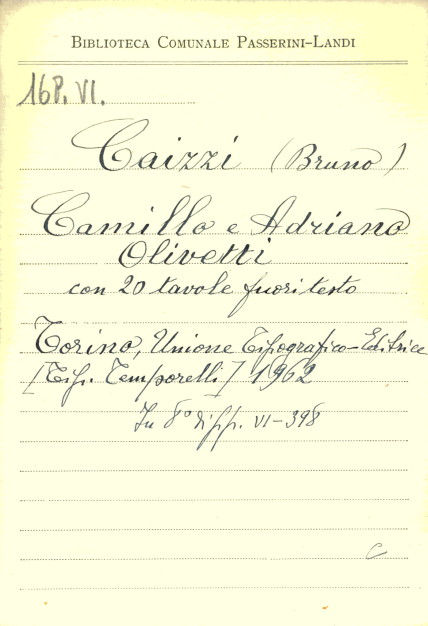 BIBLIOTECA COMUNALE PASSERINI-LANDI
16P. VI.
Caizzi (Bruno)
Camillo e Adriano
Olivetti
con 20 tavole fuori testo
Torino, Unione Tipografico-Editrice
[Tip. Temporelli] 1962
In 8° di pp. VI-398
C